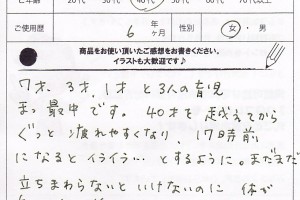 20代 30代 40代 50代 60代 70代以上
ご使用歴 6 年 ヶ月 性別 女・男
商品をお使い頂いたご感想をお書きください。
イラストも大歓迎です♪
7才、3才、1才 と3人の育児
まっ最中です。40才を越えてから
ぐっと疲れやすくなり、17時前
になるとイライラ… とするように。まだまだ
立ちまわらないと いけないのに 体が